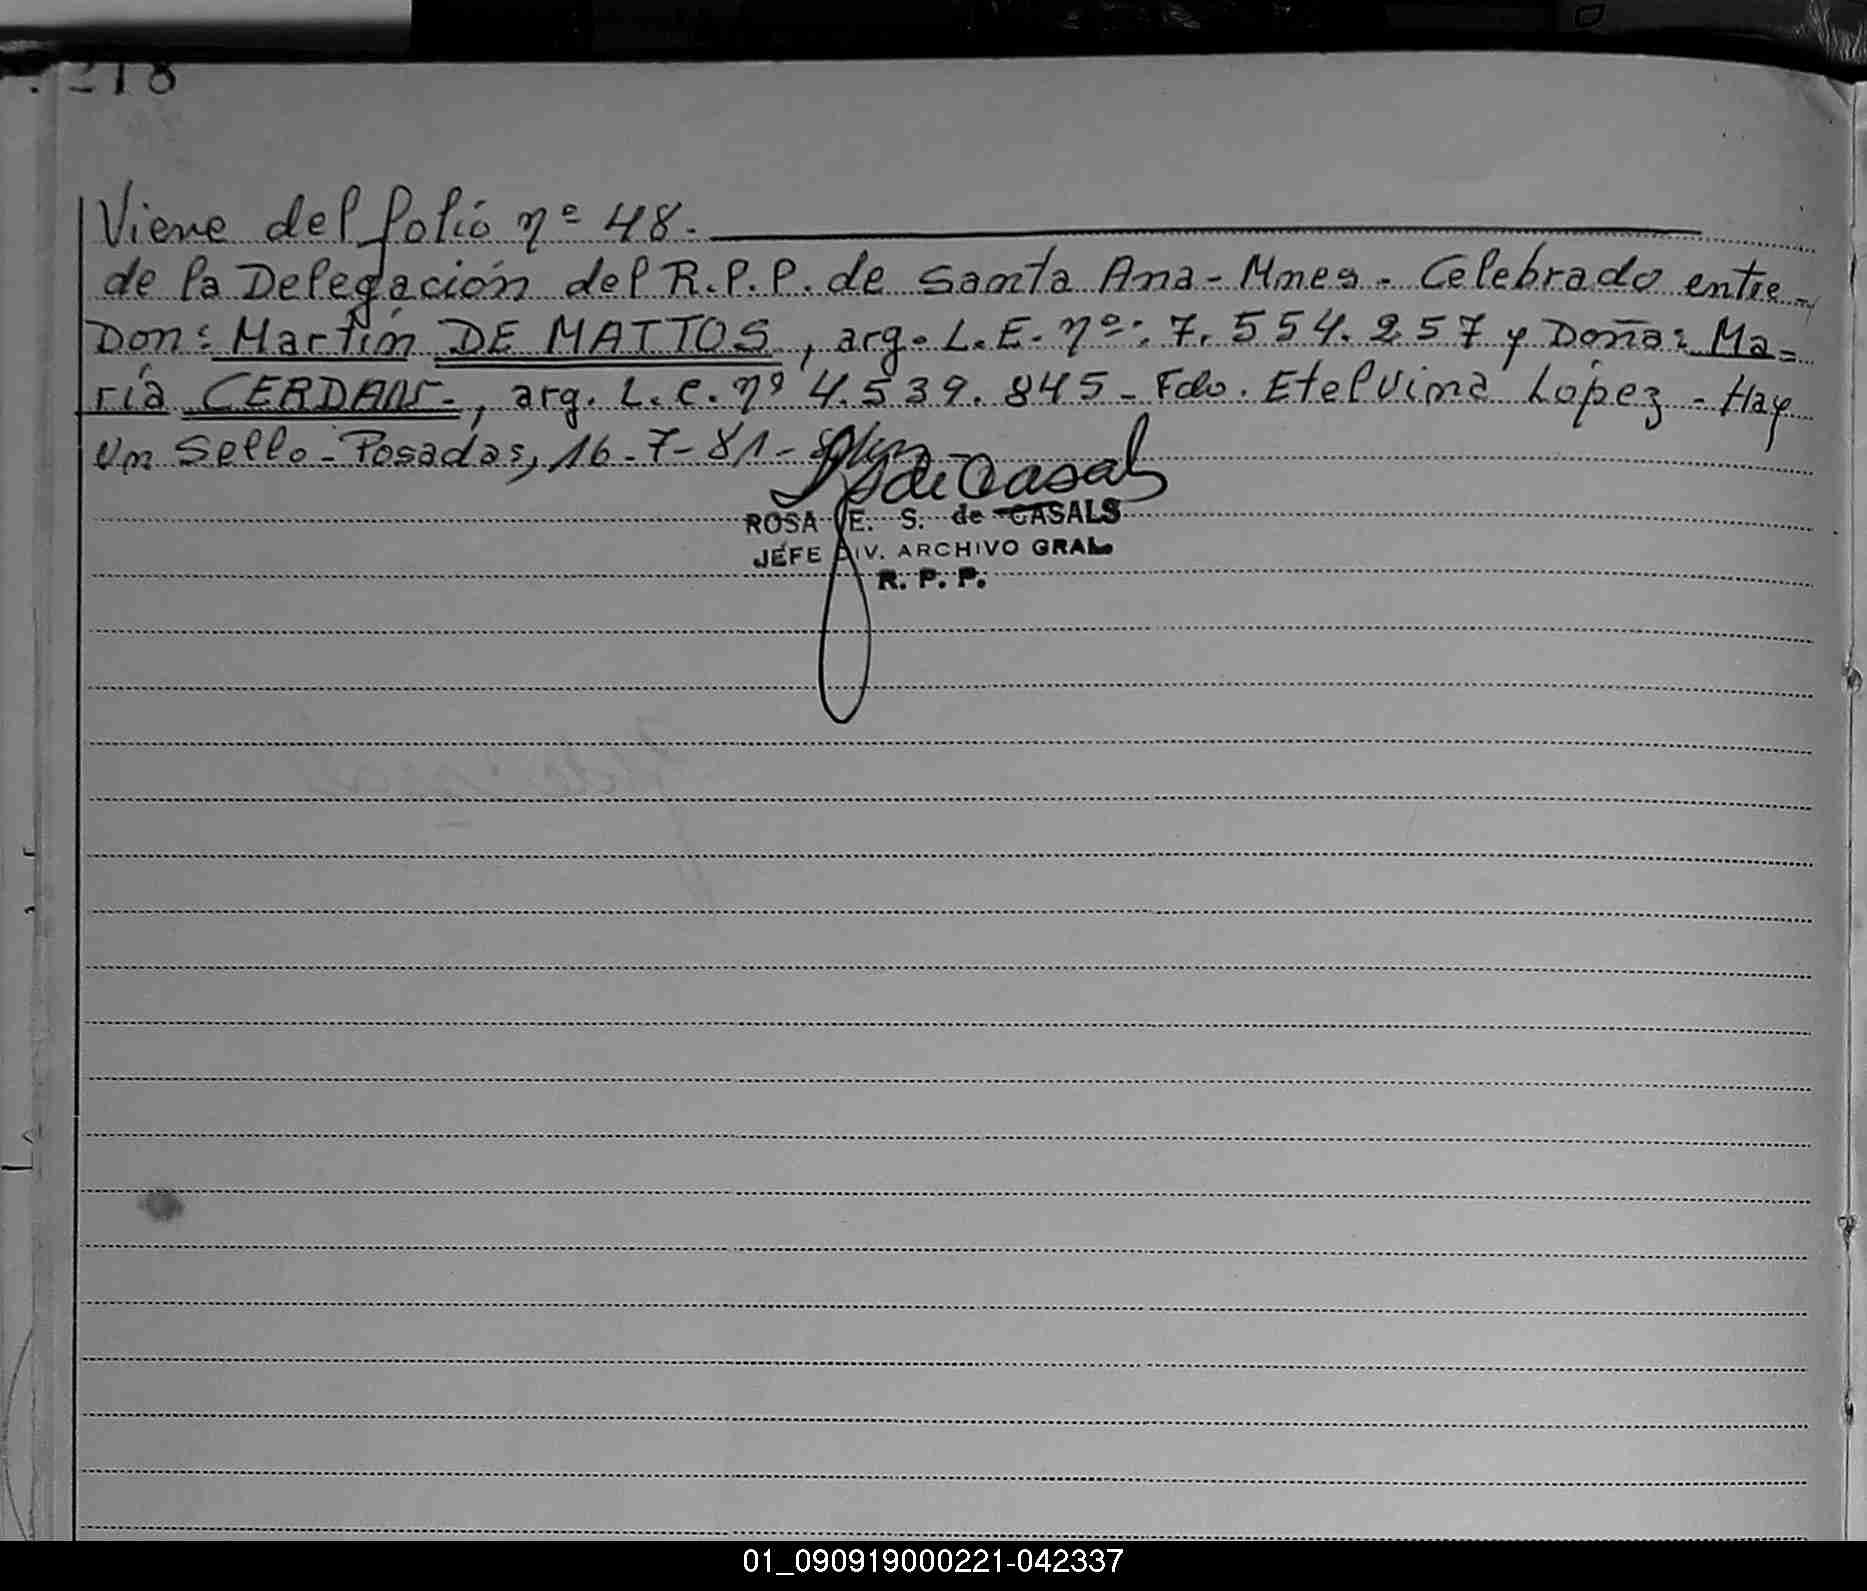 218
Viene del folio nº 48.
de la Delegación del R.P.P. de Santa Ana - Mnes. Celebrado entre
Don: Martín DE MATTOS, arg. L.E. nº: 7.554.257 y Doña: Ma=
ría CERDAN-, arg. L.C. nº 4.539.845 - Fdo. Etelvina López - Hay
un Sello - Posadas, 16-7-81-
ROSA E. S. de CASALS
JEFE DIV. ARCHIVO GRAL.
R. P. P.
01_090919000221-042337